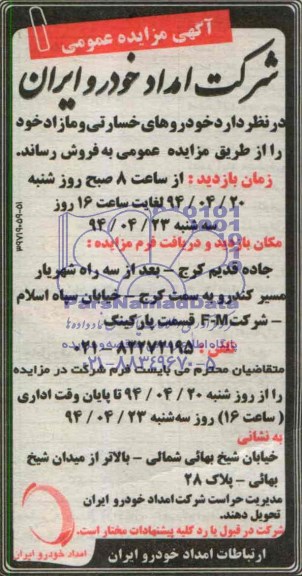 آگهی مزایده عمومی
شرکت امداد خودرو ایران
در نظر دارد خودروهای خسارتی و مازاد خود
را از طریق مزایده عمومی به فروش رساند.
زمان بازدید : از ساعت ۸ صبح روز شنبه
۹۴ / ۰۴ / ۲۰ لغایت ساعت ۱۶ روز
سه شنبه ۲۳ / ۰۴ / ۹۴
مکان بازدید و دریافت فرم مزایده :
جاده قدیم کرج – بعد از سه راه شهریار
مسیر کندرو به سمت کرج – خیابان سپاه اسلام
– شرکت F-M قسمت پارکینگ
تلفن : ۸۲۲۷۲۱۹۵-۰۲۱
متقاضیان محترم می بایست فرم شرکت در مزایده
را از روز شنبه ۲۰ / ۰۴ / ۹۴ تا پایان وقت اداری
( ساعت ۱۶) روز سه شنبه ۲۳ / ۰۴ / ۹۴
به نشانی
خیابان شیخ بهائی شمالی – بالاتر از میدان شیخ
بهائی – پلاک ۲۸
مدیریت حراست شرکت امداد خودرو ایران
تحویل دهند.
شرکت در قبول یا رد کلیه پیشنهادات مختار است.
امداد خودرو ایران
ارتباطات امداد خودرو ایران
ParsNamadData
۰۲۱-۸۸۳۴۹۶۷۰-۵